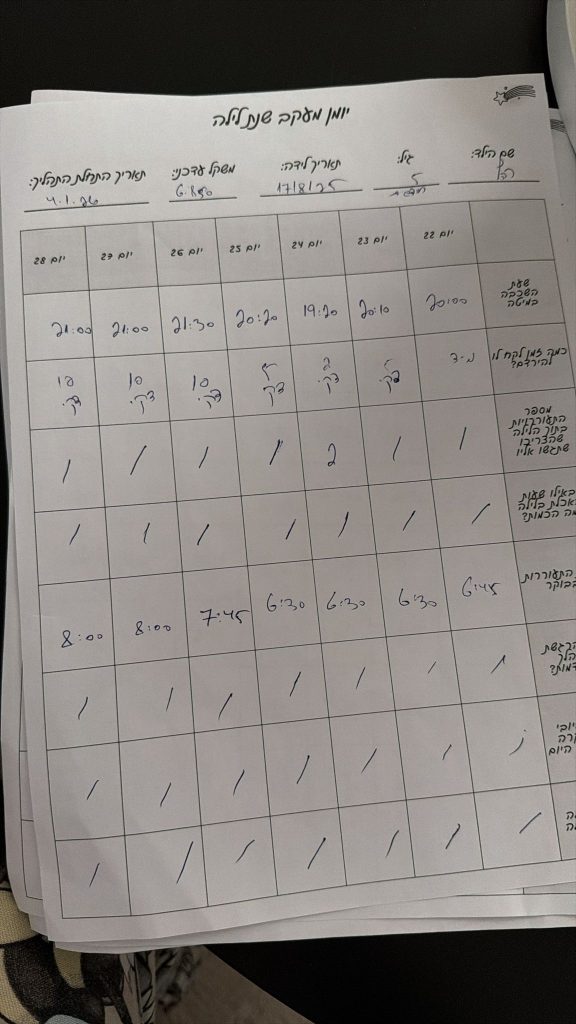 יומן מעקב שנת לילה
שם הילד: גיל: 5 תאריך לידה: 17/8/25 משקל עדכני: 6.850 תאריך התחלת התהליך: 4.1.26
יום 22 יום 23 יום 24 יום 25 יום 26 יום 27 יום 28
שעת השכבה במיטה 20:00 20:10 19:20 20:20 21:30 21:00 21:00
כמה זמן לקח לו להירדם? דק. דק. דק. 10 דק. 10 דק. 10 דק.
מספר התעוררויות בתוך הלילה שהצריכו שתגשו אליו / / 2 / / / /
באילו שעות אכלת בלילה מה הכמות? / / / / / / /
התעוררות בבוקר 6:45 6:30 6:30 6:30 7:45 8:00 8:00
/ / / / / / /
היום / / / / / /
/ / / / / / /